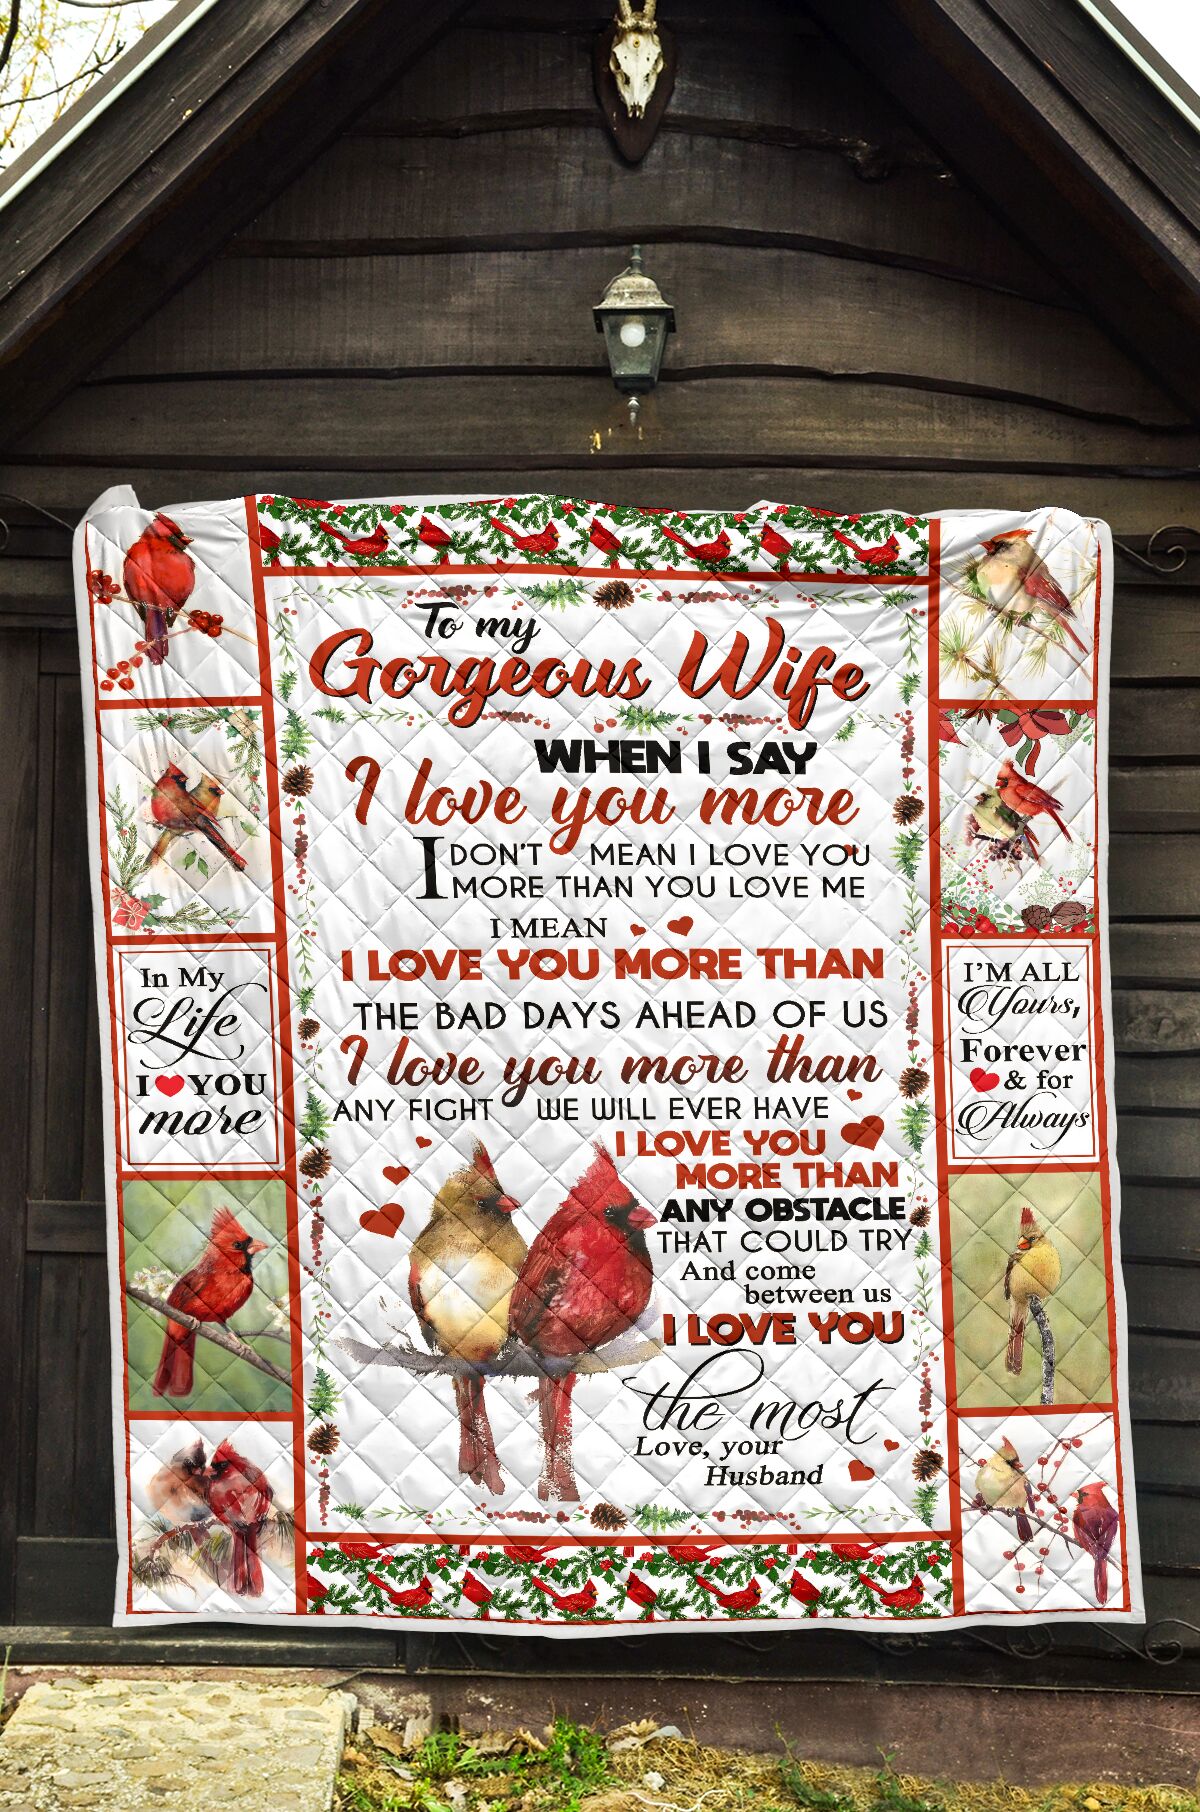 To my
Gorgeous Wife
WHEN I SAY
I love you more
I DON'T MEAN I LOVE YOU
MORE THAN YOU LOVE ME
I MEAN
I LOVE YOU MORE THAN
THE BAD DAYS AHEAD OF US
I love you more than
ANY FIGHT WE WILL EVER HAVE
I LOVE YOU
MORE THAN
ANY OBSTACLE
THAT COULD TRY
And come
between us
I LOVE YOU
the most
Love, your
Husband
In My
Life
I YOU
more
I'M ALL
Yours,
Forever
& for
Always